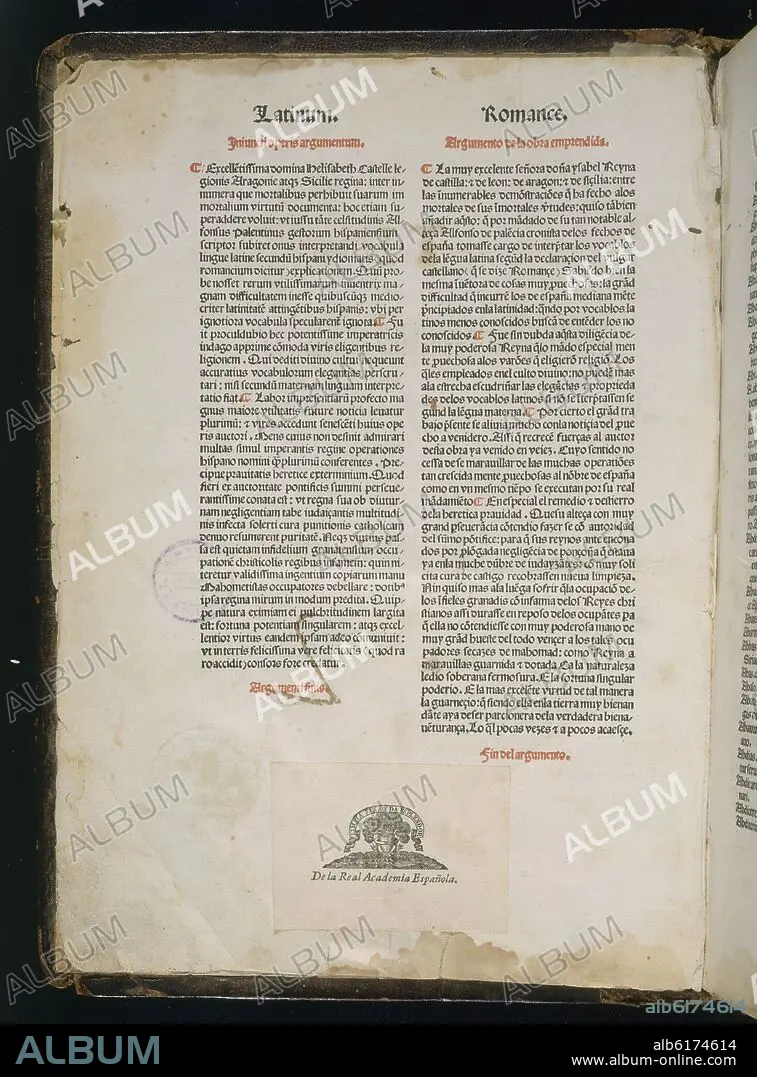 Latinum.
Iniuncti operis argumentum.
Excellẽtissima domina Helisabeth Castelle le-
gionis Aragonie atqʒ Sicilie regina: inter in-
numera que mortalibus perhibuit suarum im
mortalium virtutũ documenta: hoc etiam su-
peraddere voluit: vt iussu tãte celsitudinis Al-
fonsus Palentinus gestorum hispaniensium
scriptor subiret onus interpretandi vocabula
lingue latine secundũ hispanẏ
romancium dicitur explicationem. Quũ pro-
be nosset rerum vtilissimarum inuentrix ma-
gnam difficultatem inesse quibuscũqʒ medio-
criter latinitatẽ attingẽtibus hispanis: vbi per
ignotiora vocabula specularent ignota. Fu
it proculdubio hec potentissime imperatricis
indago apprime cõmoda viris eligentibus re-
ligionem. Qui dediti diuino cultui nequeunt
accuratius vocabulorum elegantias perscru-
tari: nisi secundũ maternam linguam interpre-
tatio fiat. Labor impresentiarũ profecto ma
gnus maiore vtilitatis future noticia leuatur
plurimũ: et vires accedunt senescẽti huius ope
ris auctori. Mens cuius non desinit admirari
multas simul imperantis regine operationes
hispano nomini qʒplurimũ conferentes. Pre-
cipue prauitatis heretice exterminium. Quod
fieri ex auctoritate pontificis summi perseue-
rantissime conata est: vt regna sua ob diutur-
nam negligentiam tabe iudaizantis multitudi-
nis infecta solerti cura punitionis catholicam
denuo resumerent puritatẽ. Neqʒ diutius pas-
sa est quietam infidelium granatensium occu-
pationẽ christicolis regibus infamem: quin ni-
teretur validissima ingentium copiarum manu
Mahometistas occupatores debellare: dotibꝰ
ipsa regina mirum in modum predita. Quip-
pe natura eximiam ei pulchritudinem largita
est: fortuna potentiam singularem: atqʒ excel-
lentior virtus eandem ipsam adeo cõmuniuit:
vt interris felicissima vere felicitatis (quod ra
ro accidit) consors fore credatur.
Argumenti finis.
Romance.
Argumento de la obra emprendida.
La muy excelente señora doña ysabel Reyna
de castilla: ⁊ de leon: de aragon: ⁊ de siçilia: entre
las inumerables demõstraciões q̃ ha fecho alos
mortales de sus ĩmortales virtudes: quiso tãbien
añadir aq̃sto: q̃ por mãdado de su tan notable al-
teza Alfonso de palẽcia cronista delos fechos de
españa tomasse cargo de interp̃tar los vocablos
dela lẽgua latina segũd la declaraçion del vulgar
castellano: q̃ se dize Romançe. Sabiẽdo bien la
mesma sueñtora de cosas muy puechosas: la grãd
difficultad q̃ incurrẽ los de españa mediana mẽte
prĩcipiados enla latinidad: qñdo por vocablos la
tinos menos conosçidos buscã de entẽder los no
conosçidos. Fue sin dubda aq̃sta diligẽcia de-
la muy poderosa Reyna q̃lo mãdo especial men
te puechosa alos varões q̃ eligierõ religiõ. Los
q̃les empleados enel culto diuino: no podẽ mas
ala estrecha escudriñar las elegãcias ⁊ propieda
des delos vocablos latinos si nõ se iterp̃tassen se
gund la lẽgua materna. Por cierto el grãd tra
bajo p̃sente se aliuia mucho conla notiçia del pue
cho a venidero. Assi q̃ recrecẽ fuerças al auctor
desta obra ya venido en veiez. Cuyo sentido no
cessa de se marauillar de las muchas operatiões
tan crescida mente puechosas al nõbre de españa
como en vn mesmo tiẽpo se executan por su real
mãdamiẽto. En especial el remedio ⁊ destierro
dela heretica prauidad. Que su alteça con muy
grand p̃seuerãcia cõtendio fazer se cõ autoridad
del sũmo põtifice: para q̃ sus reynos ante encona
dos por plõgada negligẽçia de ponçoña q̃ estaua
ya enla muche dũbre de iudayzãtes: cõ muy soli
cita cura de castigo recobrassen nueua limpieza.
Nin quiso mas ala luẽga sofrir q̃la ocupaciõ de-
los ifieles granadis cõ infamia delos Reyes chri
stianos assi durasse en reposo delos ocupãtes pa
q̃ ella no cõtendiesse con muy poderosa mano de
muy grãd hueste del todo vençer a los tales ocu
padores secazes de mahomad: como Reyna a
marauillas guarnida ⁊ dotada. Ca la naturaleza
ledio soberana fermosura. E la fortuna singular
poderio. E la mas excelẽte virtud de tal manera
la guarneçio: q̃ siendo ella enla tierra muy bienan
dãte aya de ser parcionera dela verdadera biena-
uẽturança. Lo q̃l pocas vezes ⁊ a pocos acaesçe.
Fin del argumento.
De la Real Academia Española.
ALBUM
alb6174614
alb6174614
www.album-online.com